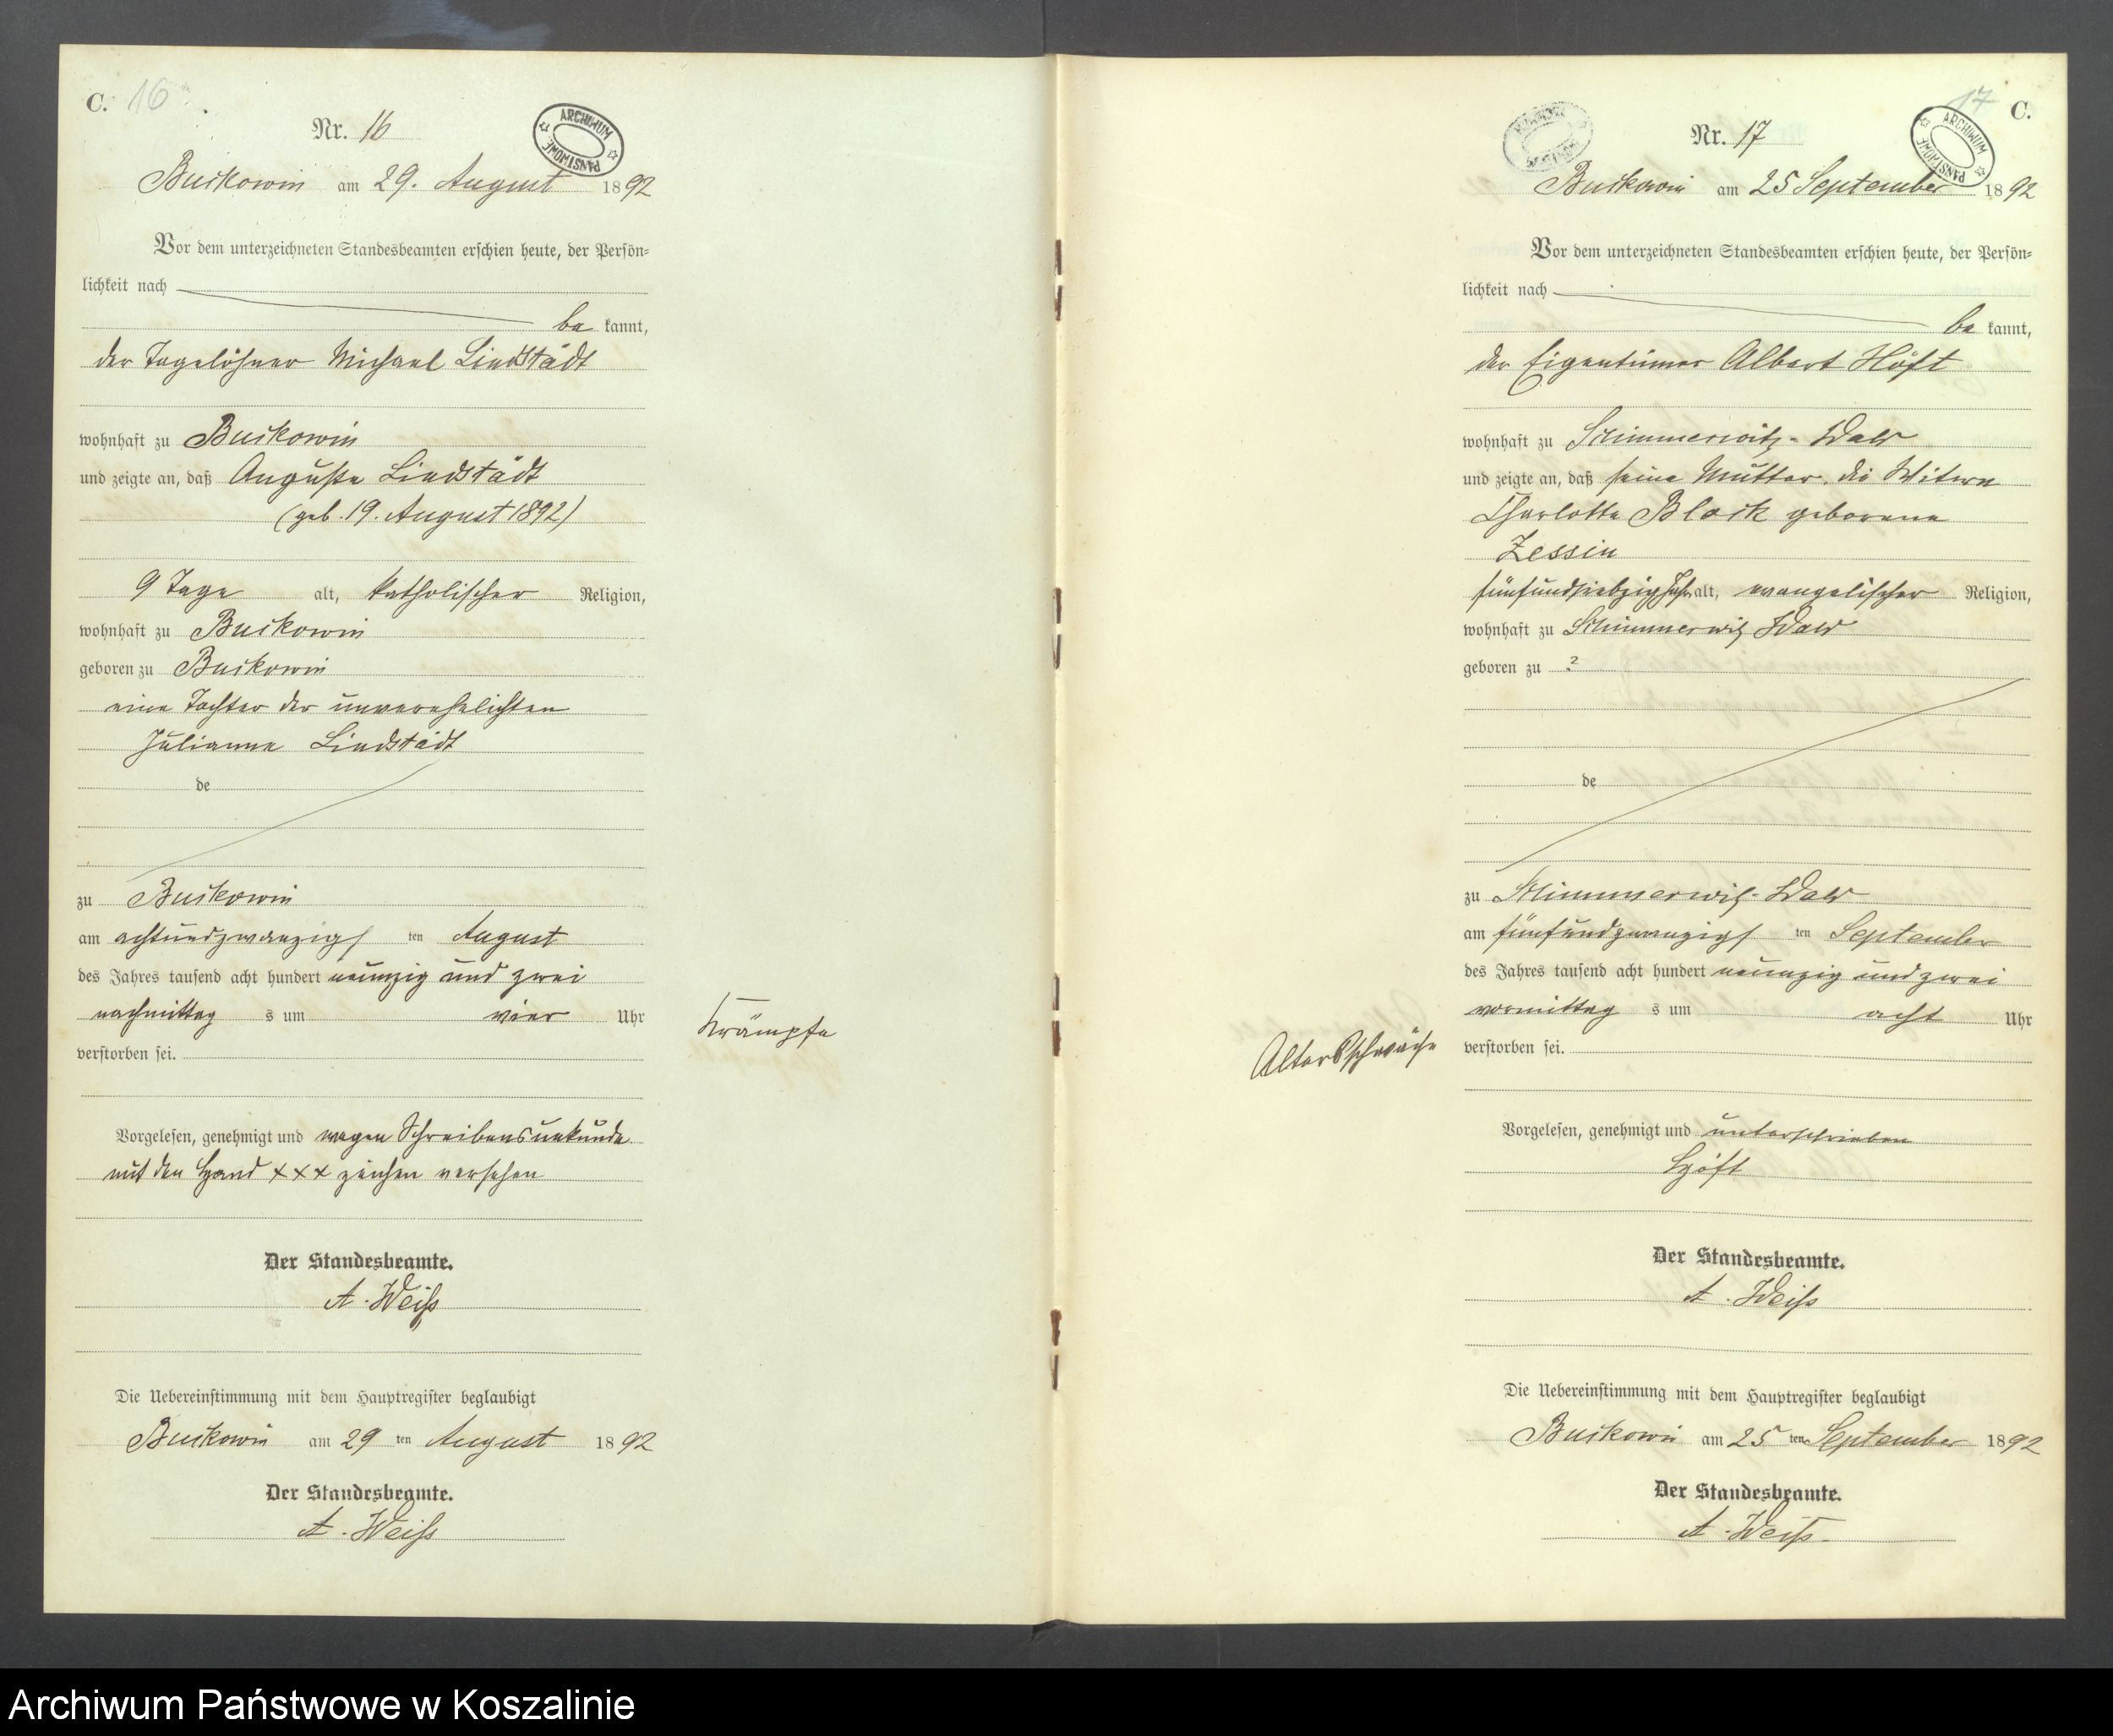 C. 16
Nr. 16
ARCHIWUM PAŃSTWOWE
Buckowin am 29. August 1892
Vor dem unterzeichneten Standesbeamten erschien heute, der Persön-
lichkeit nach
be kannt,
der Tagelöhner Michael Lindstädt
wohnhaft zu Buckowin
und zeigte an, daß Auguste Lindstädt
(geb. 19. August 1892)
9 Tage alt, katholischer Religion,
wohnhaft zu Buckowin
geboren zu Buckowin
eine Tochter der unverehelichten
Julianne Lindstädt
de
zu Buckowin
am achtundzwanzigs ten August
des Jahres tausend acht hundert neunzig und zwei
nachmittag s um vier Uhr
verstorben sei.
Krämpfe
Vorgelesen, genehmigt und wegen Schreibensunkunde
mit den Hand xxx zeichen versehen
Der Standesbeamte.
A. Weiß
Die Uebereinstimmung mit dem Hauptregister beglaubigt
Buckowin am 29 ten August 1892
Der Standesbeamte.
A. Weiß
17 C.
Nr. 17
ARCHIWUM PAŃSTWOWE
Buckowin am 25 September 1892
Vor dem unterzeichneten Standesbeamten erschien heute, der Persön-
lichkeit nach
be kannt,
der Eigentümer Albert Höft
wohnhaft zu Schimmerwitz-Wald
und zeigte an, daß seine Mutter, die Witwe
Charlotte Block geborene
Zessin
fünfundsiebzig Jahr alt, evangelischer Religion,
wohnhaft zu Schimmerwitz Wald
geboren zu ?
de
zu Schimmerwitz-Wald
am fünfundzwanzigs ten September
des Jahres tausend acht hundert neunzig und zwei
vormittag s um acht Uhr
verstorben sei.
Altersschwäche
Vorgelesen, genehmigt und unterschrieben
Höft
Der Standesbeamte.
A. Weiß
Die Uebereinstimmung mit dem Hauptregister beglaubigt
Buckowin am 25 ten September 1892
Der Standesbeamte.
A. Weiß
Archiwum Państwowe w Koszalinie